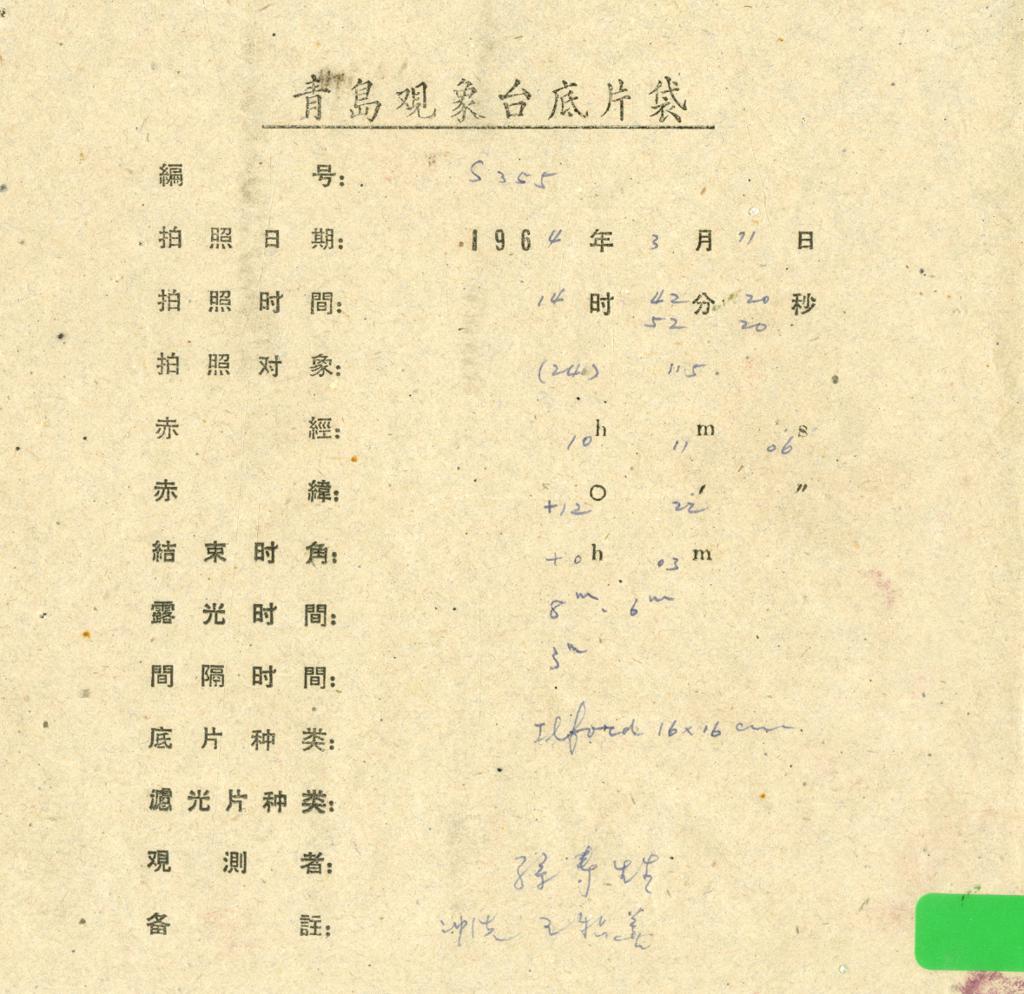 青島观象台底片袋
編号: S355
拍照日期: 1964年3月11日
拍照时間: 14时42分20秒
52 20
拍照对象: (24) 115.
赤經: 10h 11m 06s
赤緯: +12° 22′ ″
結束时角: +0h 03m
露光时間: 8m. 6m
間隔时間: 3m
底片种类: Ilford 16×16 cm
濾光片种类:
观測者: 孫寿
备註: 冲洗 王